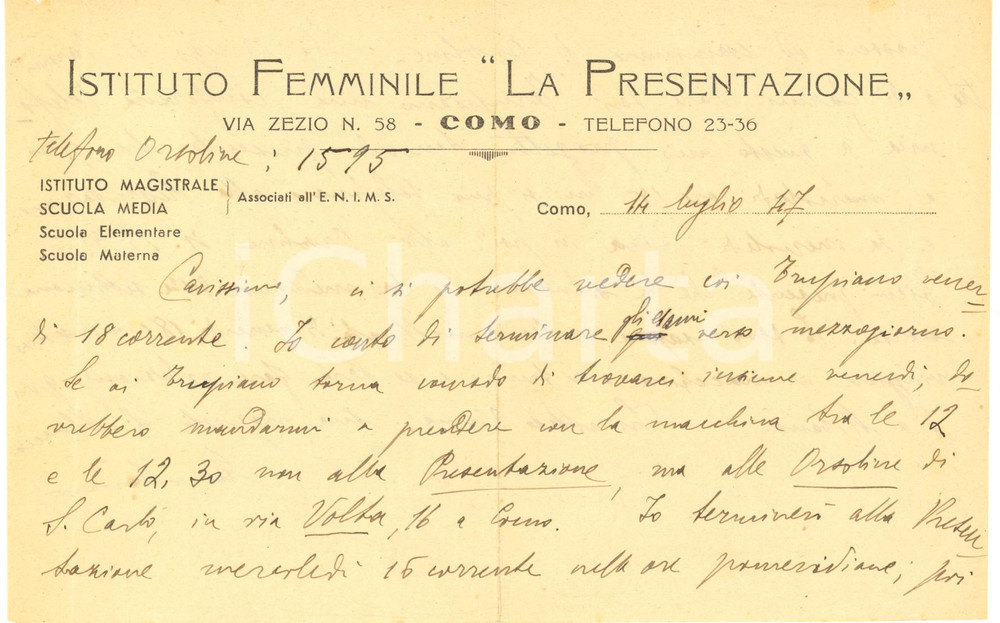 ISTITUTO FEMMINILE "LA PRESENTAZIONE„
VIA ZEZIO N. 58 - COMO - TELEFONO 23-36
Telefono Orsoline: 1595
ISTITUTO MAGISTRALE
SCUOLA MEDIA
Associati all'E. N. I. M. S.
Scuola Elementare
Scuola Materna
Como, 14 luglio 47
Carissimo, ci si potrebbe vedere coi Trupiano vener-
di 18 corrente. Io conto di terminare gli esami verso mezzogiorno.
Se ai Trupiano torna comodo di trovarci insieme venerdì, do-
vrebbero mandarmi a prendere con la macchina tra le 12
e le 12,30 non alla Presentazione, ma alle Orsoline di
S. Carlo, in via Volta, 16 a Como. Io terminerò alla Presen-
tazione mercoledì 16 corrente nelle ore pomeridiane; poi
iCharta